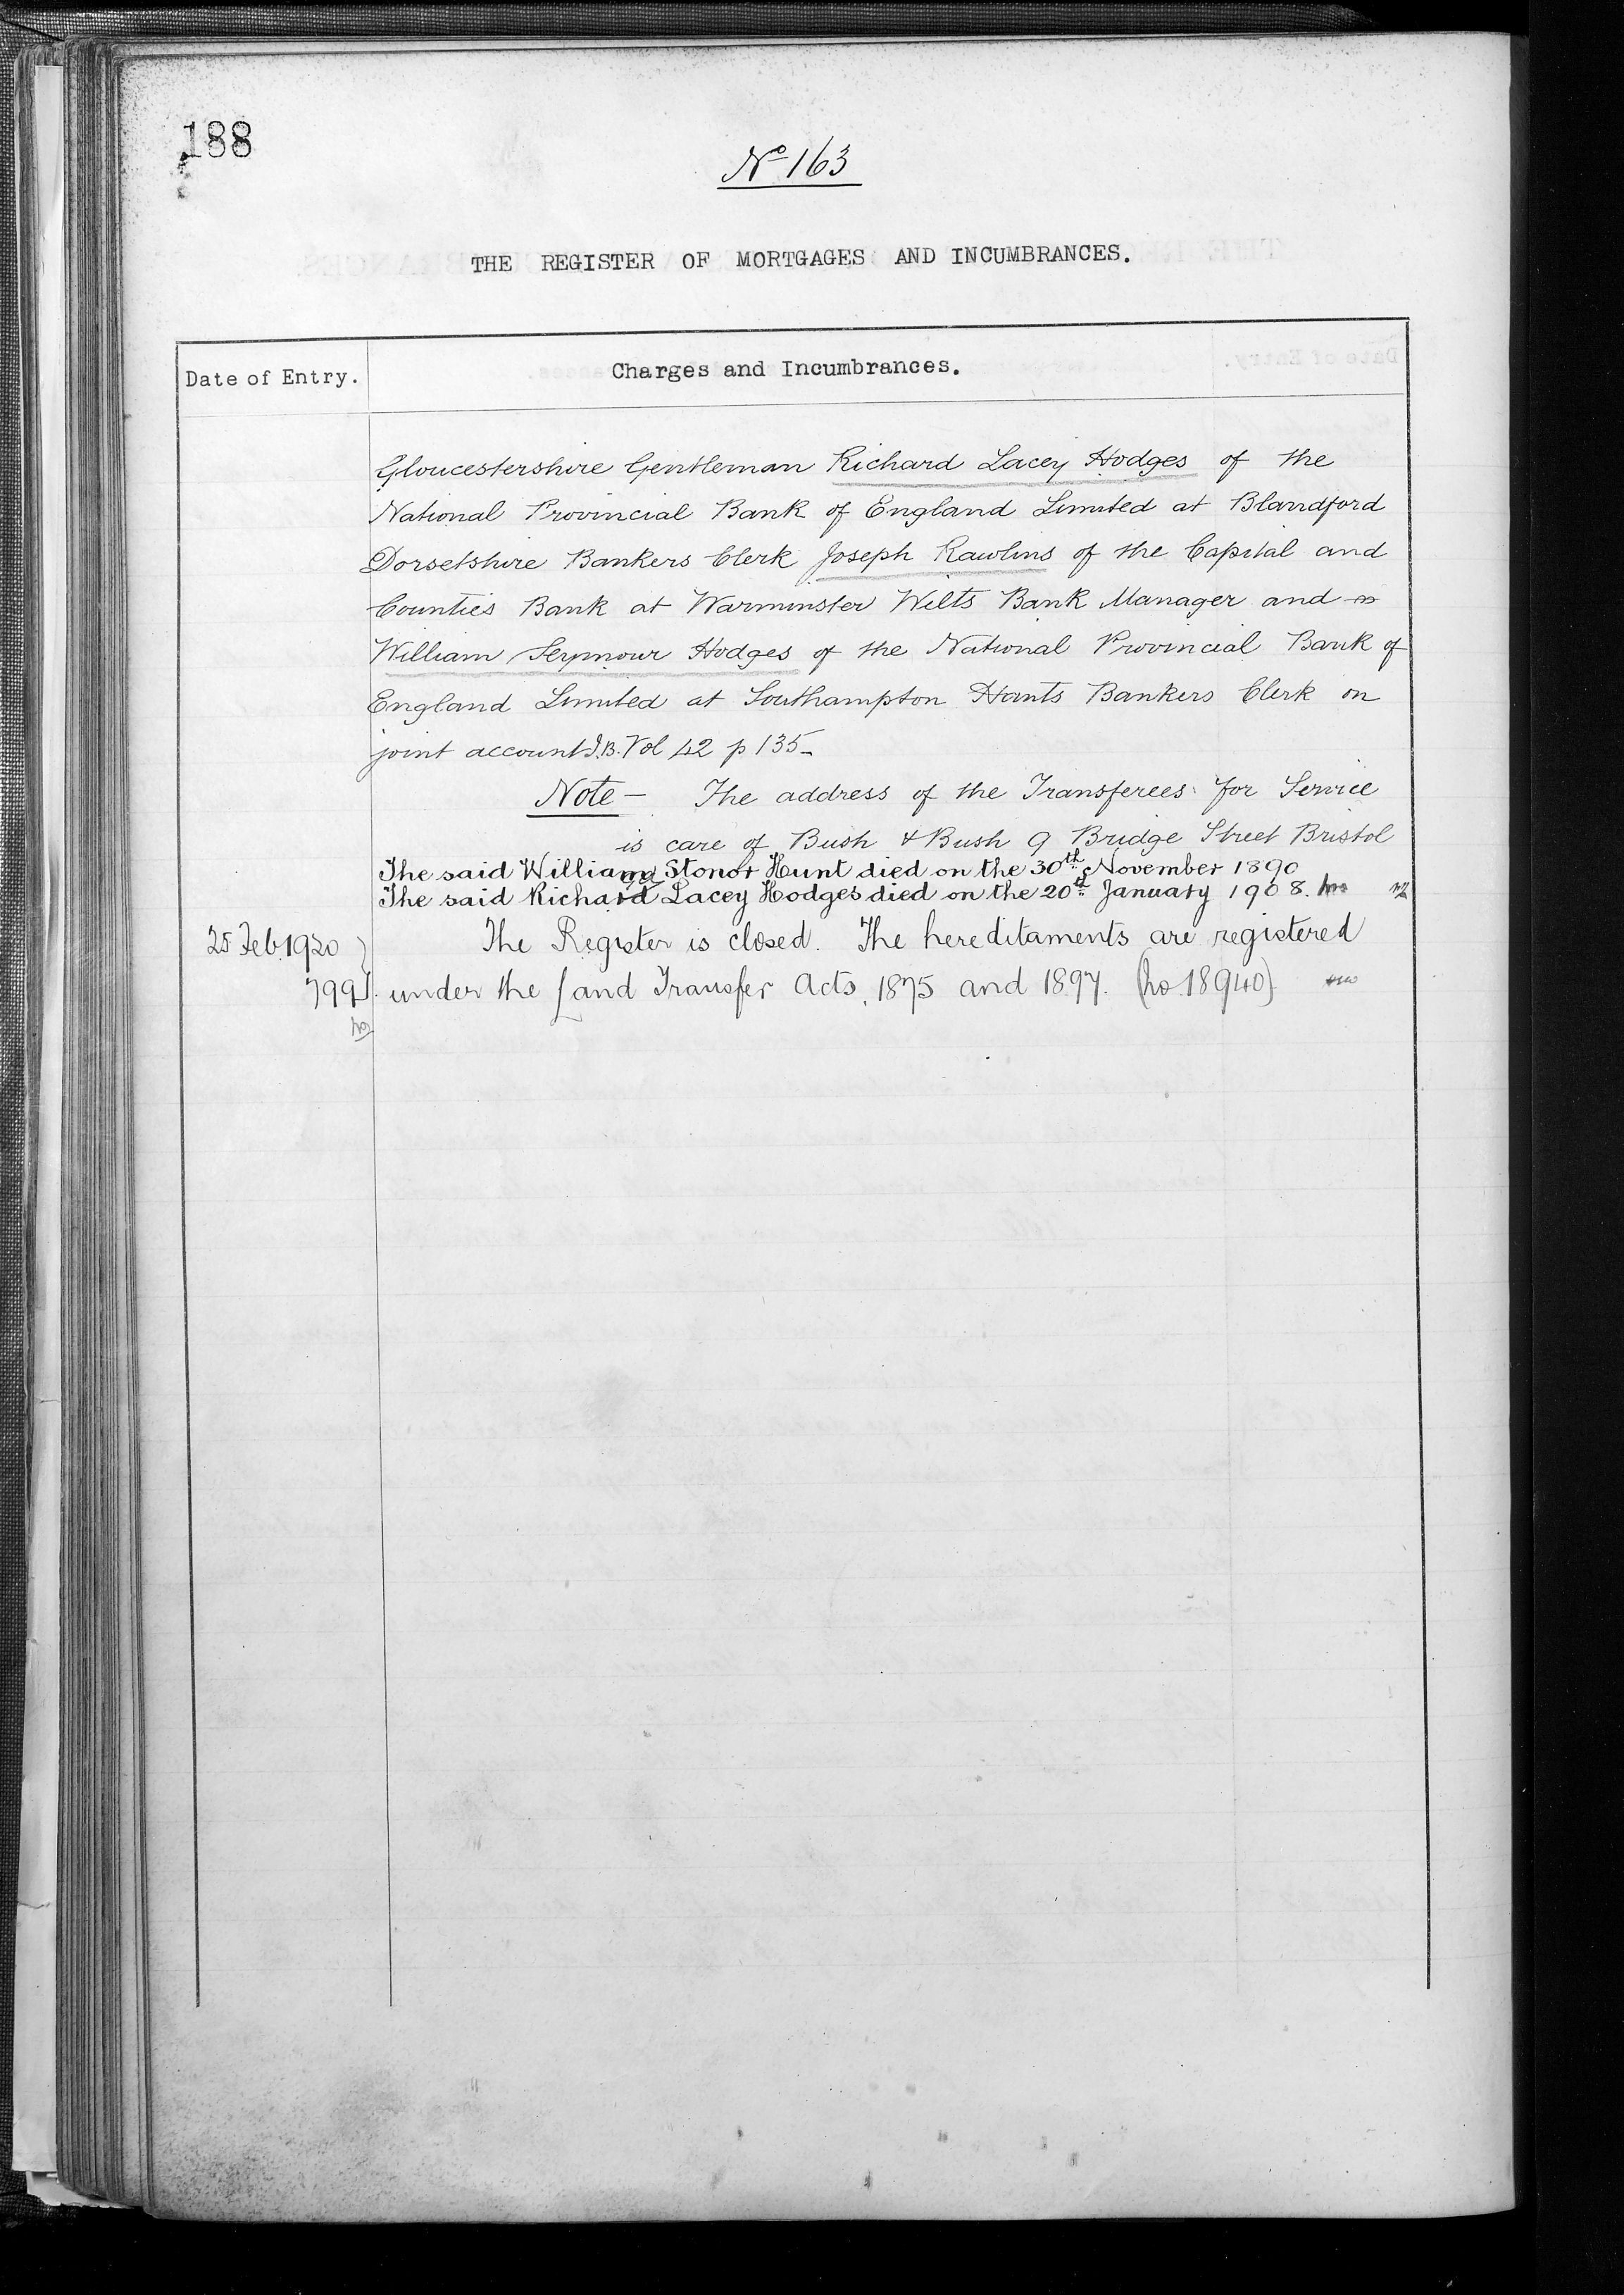 188
No 163
THE REGISTER OF MORTGAGES AND INCUMBRANCES.
Date of Entry.
Charges and Incumbrances.
Gloucestershire Gentleman Richard Lacey Hodges of the
National Provincial Bank of England Limited at Blandford
Dorsetshire Bankers Clerk Joseph Rawlins of the Capital and
Counties Bank at Warminster Wilts Bank Manager and
William Seymour Hodges of the National Provincial Bank of
England Limited at Southampton Hants Bankers Clerk on
joint account I.B. Vol 42 p 135_
Note - The address of the Transferees for Service
is care of Bush & Bush 9 Bridge Street Bristol
The said William Stonor Hunt died on the 30th November 1890
The said Richard Lacey Hodges died on the 20th January 1908.
25 Feb. 1920 The Register is closed. The hereditaments are registered
799 under the Land Transfer Acts, 1875 and 1897. (No 18940)